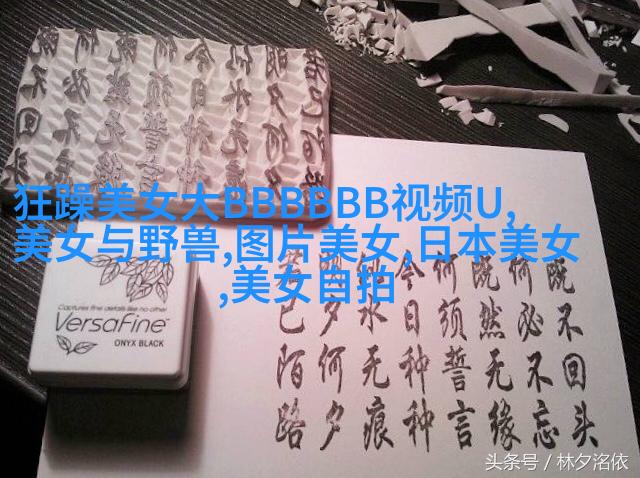 狂躁美女大BBBBBB视频U,
美女与野兽,图片美女,日本美女
,美女自拍
Captures fine details like no other
VersaFine
ONYX BLACK
既不回头
何必不忘
既然无缘
何须誓言
今日种种
似水无痕
明夕何夕
君已陌路
头条号 / 林夕洺依